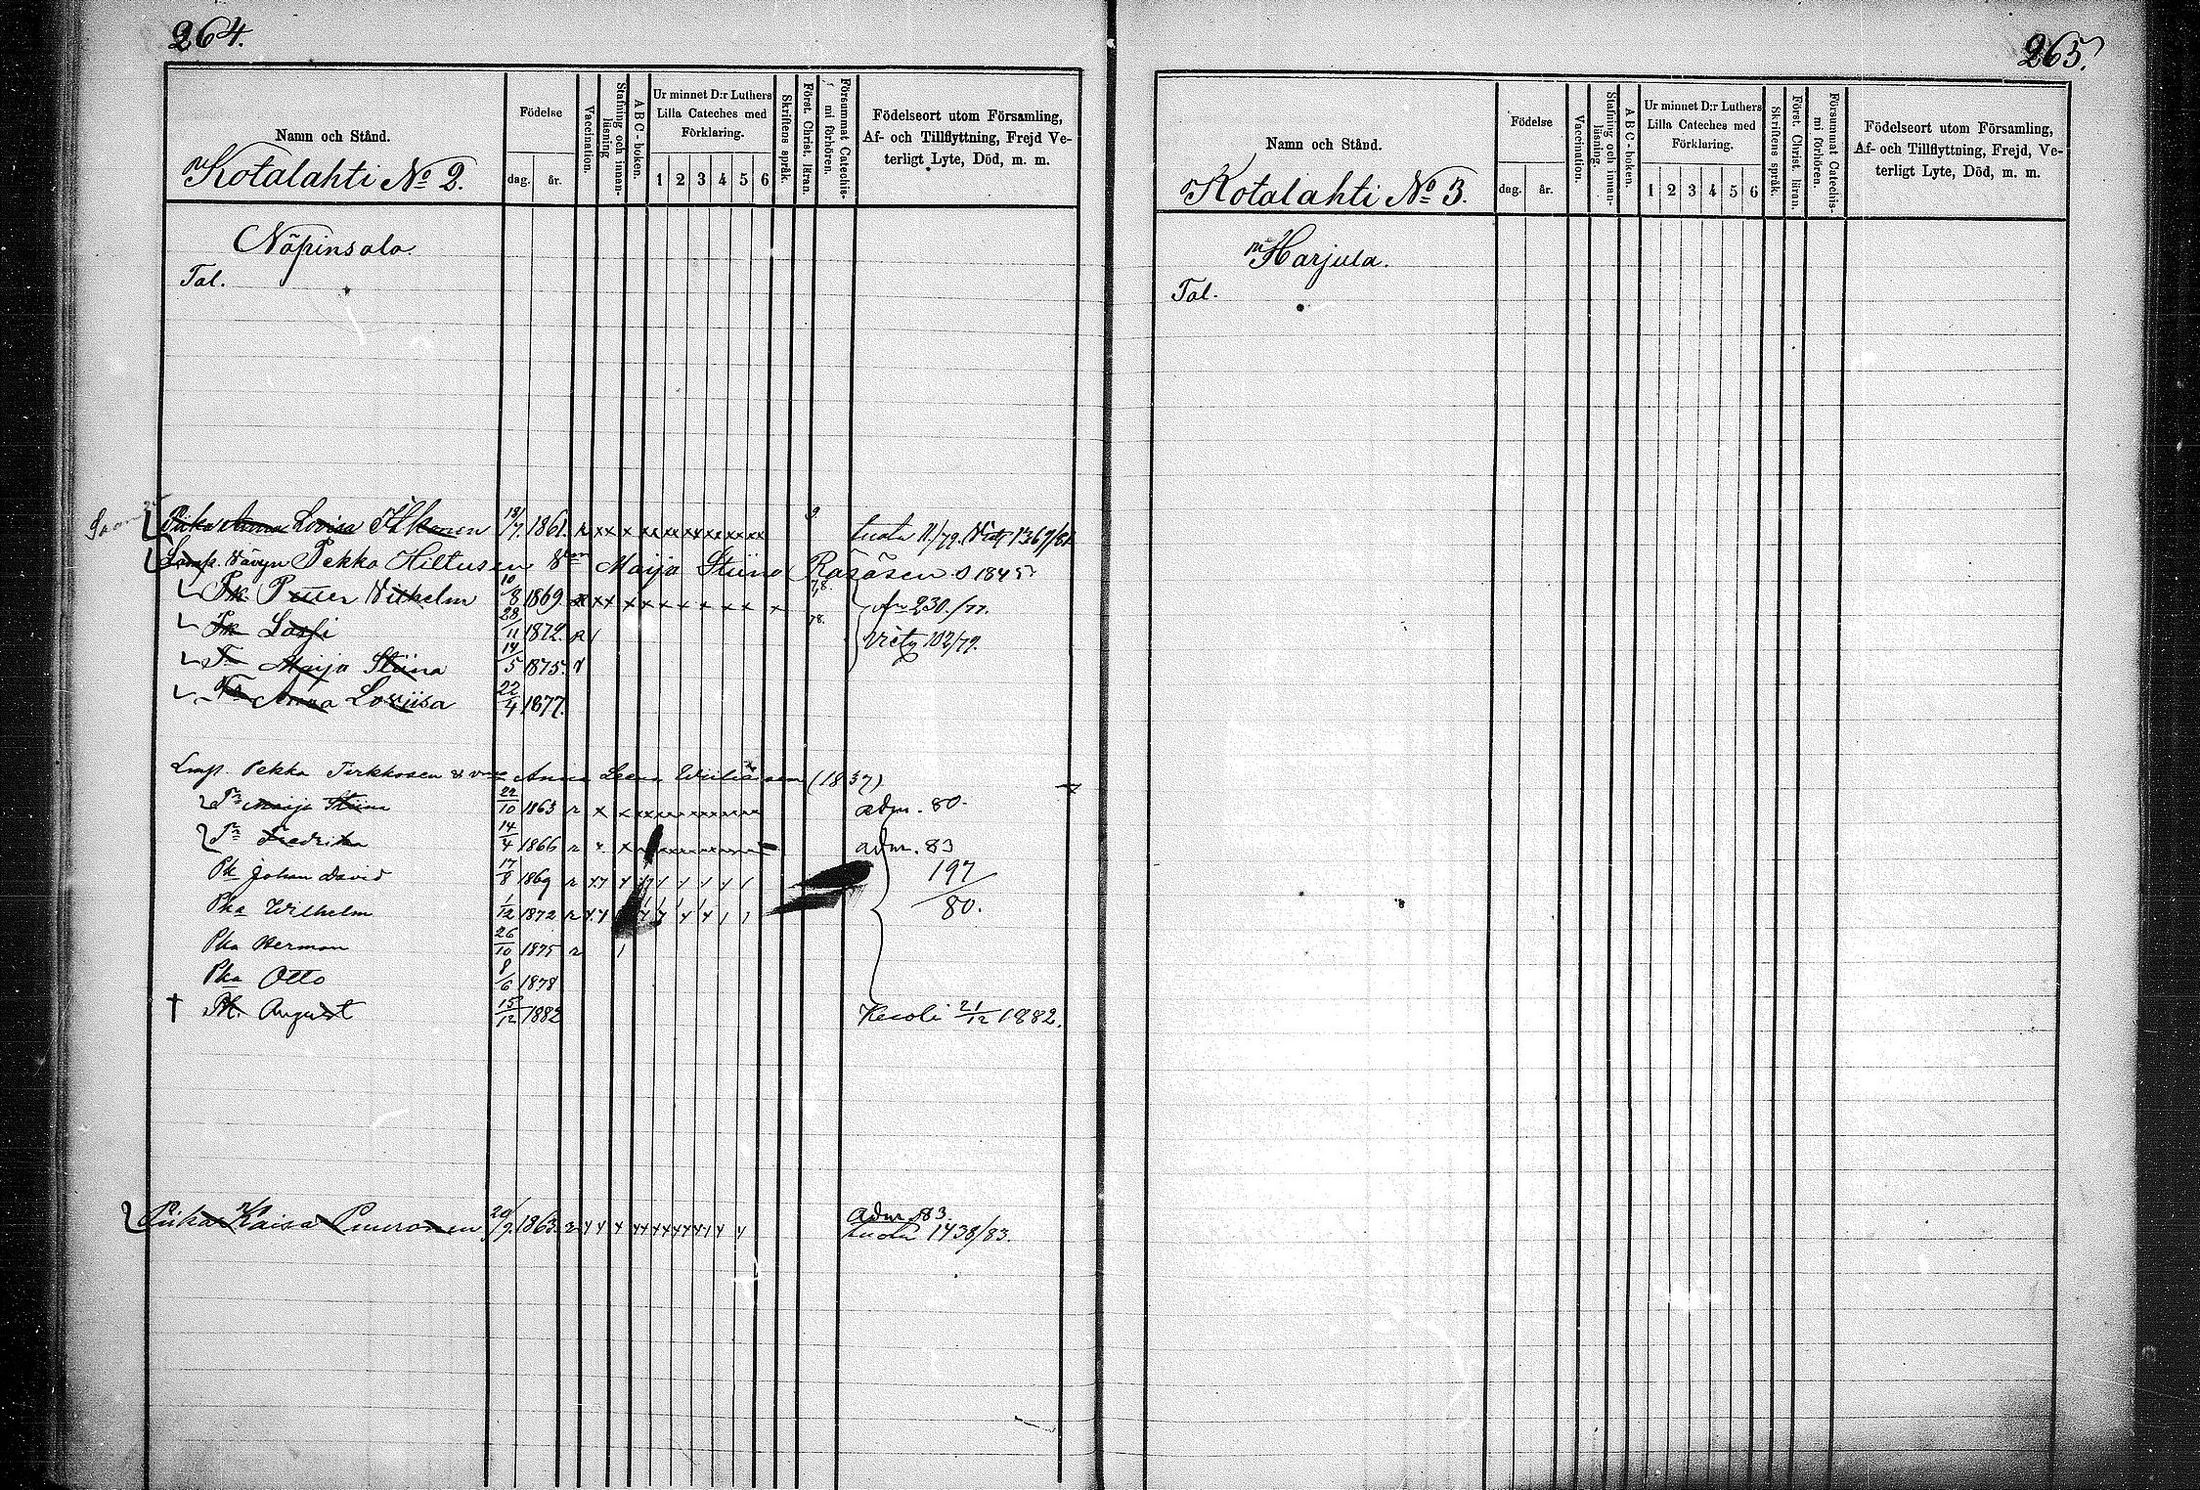 264.
Namn och Stånd.
Födelse
dag.
år.
Vaccination.
Stafning och innan-
läsning
ABC-boken.
Ur minnet D:r Luthers
Lilla Cateches med
Förklaring.
1 2 3 4 5 6
Skriftens språk.
Först. Christ. läran.
Försummat Catechis-
mi förhören.
Födelseort utom Församling,
Af- och Tillflyttning, Frejd Ve-
terligt Lyte, Död, m. m.
Kotalahti No 2.
Näpinsalo.
Tal.
Piika Anna Lovisa 18/7 1861. r
Lamp. Vävyn Pekka Hiltusen Maija Stiina Räsäsen 1845
Pk Petter Vilhelm 10/8 1869. 230./77.
Pk Lassi 28/11 1872. R 102/79.
Maija Stiina 14/5 1875.
Anna Loviisa 22/4 1877.
Lmp. Pekka Tirkkosen Anna Leena (1837)
Tr Maija Stiina 22/10 1863 r adm. 80.
Tr Fredrika 14/4 1866 r adm. 83
Pk Johan David 17/8 1869 r 197/80.
Pka Wilhelm 1/12 1872 r
Pka Herman 26/10 1875 r
Pka Otto 8/6 1878
† Pk. August 15/12 1882 Kuoli 21/12 1882.
Piika Kaisa Puuronen 20/9. 1863. r adm 83.
1438/83.
265.
Namn och Stånd.
Födelse
dag.
år.
Vaccination.
Stafning och innan-
läsning.
ABC-boken.
Ur minnet D:r Luthers
Lilla Cateches med
Förklaring.
1 2 3 4 5 6
Skriftens språk.
Först. Christ. läran.
Försummat Catechis-
mi förhören.
Födelseort utom Församling,
Af- och Tillflyttning, Frejd, Ve-
terligt Lyte, Död, m. m.
Kotalahti No 3.
Harjula.
Tal.